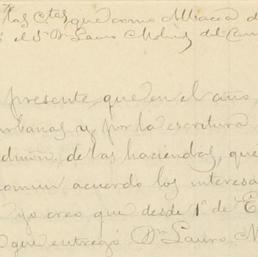 las Ctas que como Albacea d
el Sr Dn Lauro Molina del Cam
presente, que en el año,
y por la escritura
de las haciendas, que
comun acuerdo los interesa
yo creo que desde 1º de E
que entregó Dn Lauro M